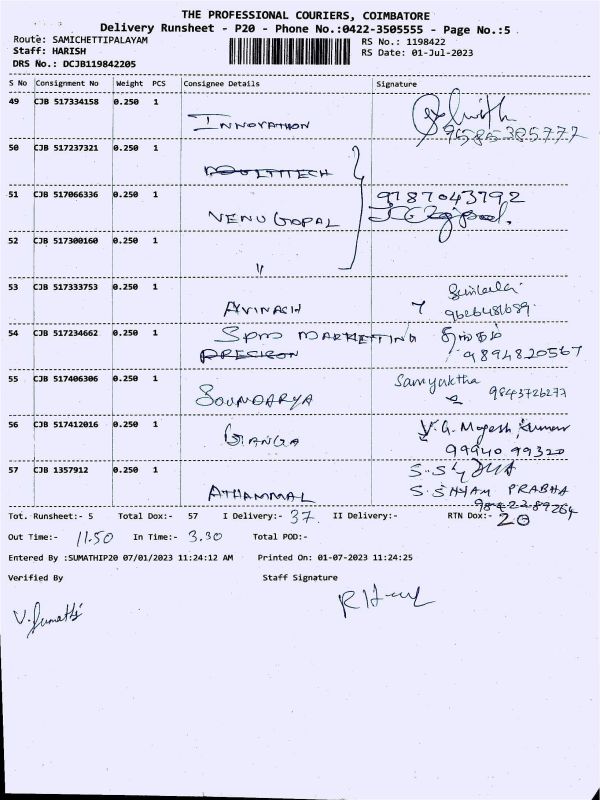 THE PROFESSIONAL COURIERS, COIMBATORE
Delivery Runsheet - P20 - Phone No.:0422-3505555 - Page No.:5
Route: SAMICHETTIPALAYAM
RS No.: 1198422
Staff: HARISH
RS Date: 01-Jul-2023
DRS No.: DCJB119842205
S No Consignment No Weight PCS Consignee Details Signature
49 CJB 517334158 0.250 1
INNOVATHON
9585385777
50 CJB 517237321 0.250 1
51 CJB 517066336 0.250 1
9787043792
VENUGOPAL
52 CJB 517300160 0.250 1
"
53 CJB 517333753 0.250 1
AVINASH
9626481689
54 CJB 517234662 0.250 1 SPM MARKETING
PRECISION
9894820567
55 CJB 517406306 0.250 1 Samyuktha
SOUNDARYA 9843726277
56 CJB 517412016 0.250 1 V.G. Mogesh Kumar
GANGA
99940 99320
57 CJB 1357912 0.250 1
ATHAMMAL S. SHYAM PRABHA
9842289264
Tot. Runsheet:- 5 Total Dox:- 57 I Delivery:- 37. II Delivery:- RTN Dox:- 20
Out Time:- 11.50 In Time:- 3.30 Total POD:-
Entered By :SUMATHIP20 07/01/2023 11:24:12 AM Printed On: 01-07-2023 11:24:25
Verified By Staff Signature
V. Sumathi